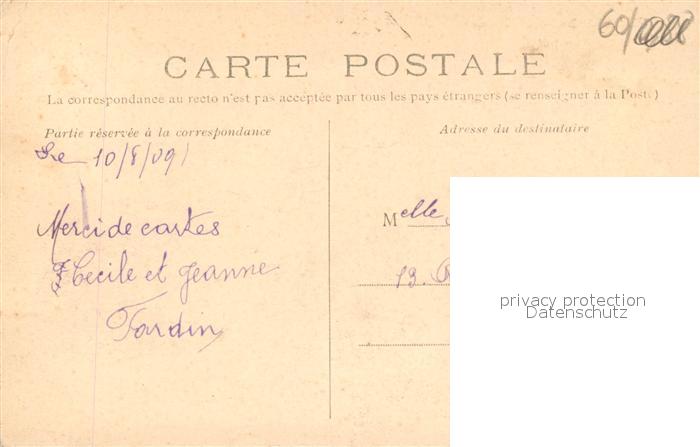 60/
CARTE POSTALE
La correspondance au recto n'est pas acceptée par tous les pays étrangers (se renseigner à la Poste)
Partie réservée à la correspondance
Adresse du destinataire
Le 10/8/09
Melle
Merci de cartes
Cecile et Jeanne
13.
Tardin
privacy protection
Datenschutz